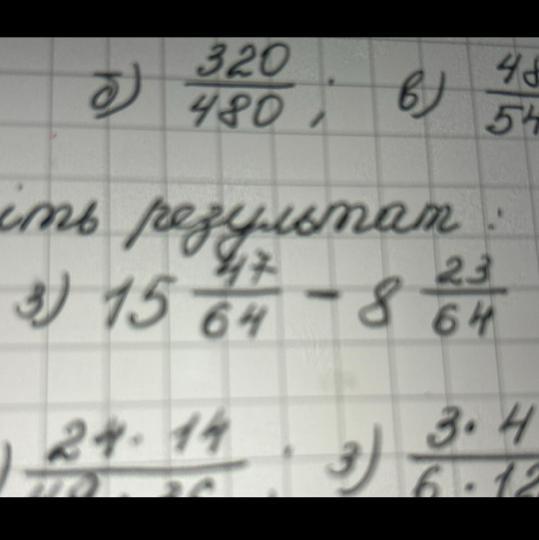 б) 320/480 ; в) 48/54
ість результат :
3) 15 47/64 - 8 23/64
) 24 · 14 / ; 3) 3 · 4 / 6 · 12